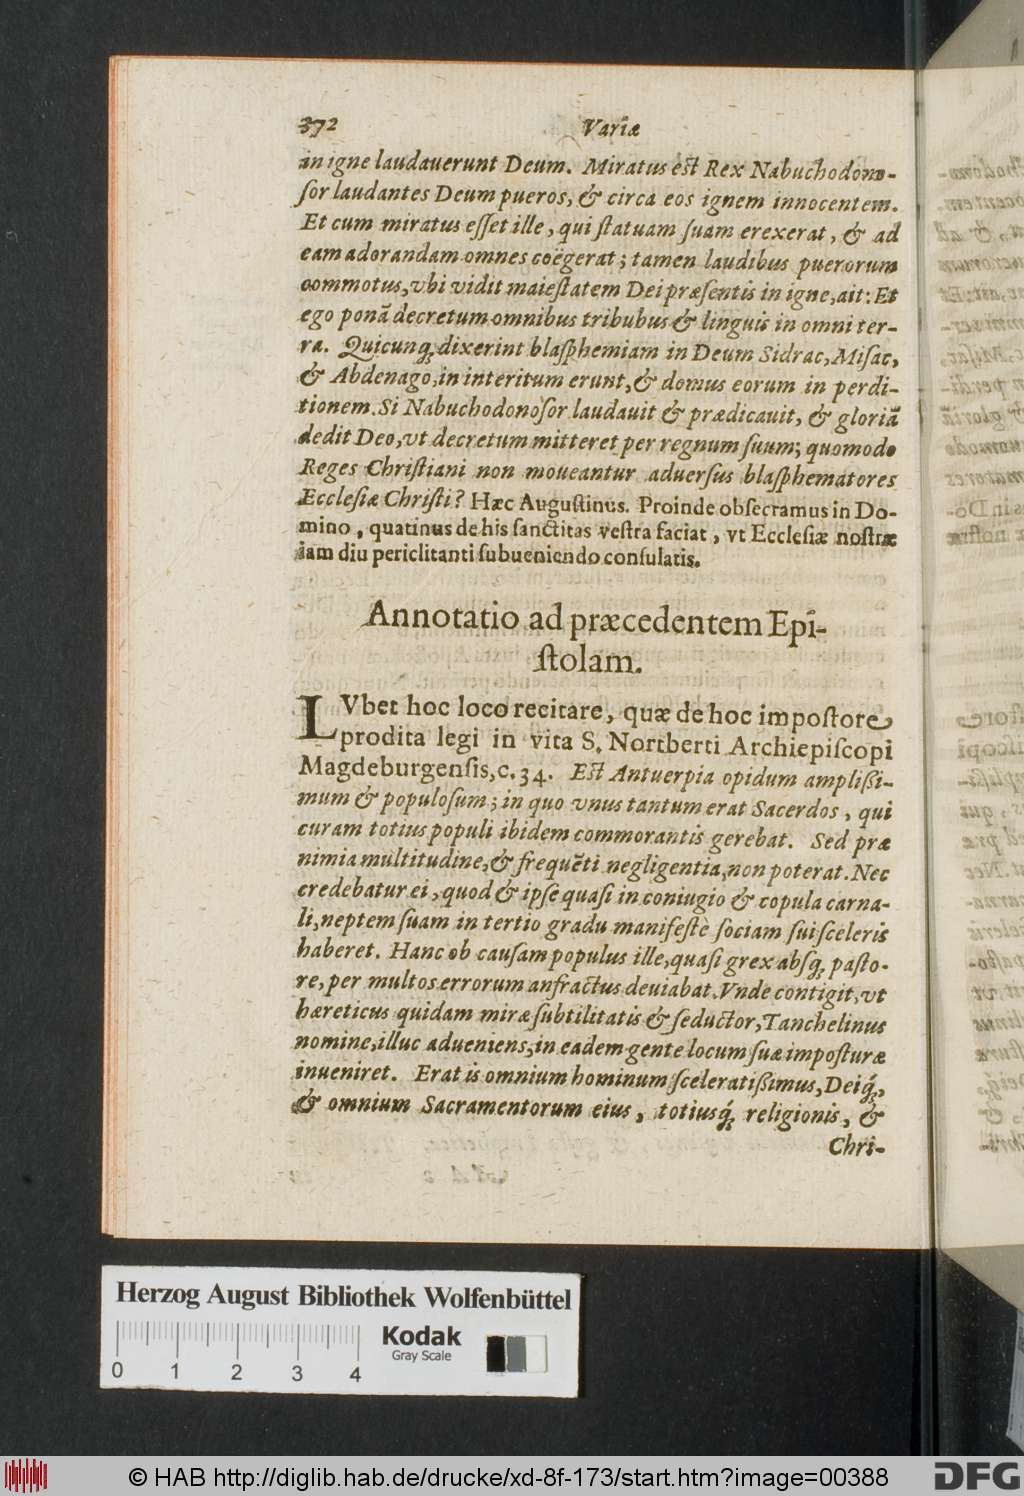 372 Variæ
in igne laudauerunt Deum. Miratus est Rex Nabuchodono-
ſor laudantes Deum pueros, & circa eos ignem innocentem.
Et cum miratus eſſet ille, qui ſtatuam ſuam erexerat, & ad
eam adorandam omnes coëgerat; tamen laudibus puerorum
commotus, vbi vidit maieſtatem Dei præſentis in igne, ait: Et
ego ponã decretum omnibus tribubus & linguis in omni ter-
ra. Quicunq́; dixerint blaſphemiam in Deum Sidrac, Miſac,
& Abdenago, in interitum erunt, & domus eorum in perdi-
tionem. Si Nabuchodonoſor laudauit & prædicauit, & gloriã
dedit Deo, vt decretum mitteret per regnum ſuum; quomodo
Reges Chriſtiani non moueantur aduerſus blaſphematores
Eccleſiæ Chriſti? Hæc Auguſtinus. Proinde obſecramus in Do-
mino, quatinus de his ſanctitas veſtra faciat, vt Eccleſiæ noſtræ
iam diu periclitanti ſubueniendo conſulatis.
Annotatio ad præcedentem Epi-
ſtolam.
LVbet hoc loco recitare, quæ de hoc impoſtore
prodita legi in vita S. Nortberti Archiepiſcopi
Magdeburgenſis, c. 34. Eſt Antuerpia opidum amplißi-
mum & populoſum; in quo vnus tantum erat Sacerdos, qui
curam totius populi ibidem commorantis gerebat. Sed præ
nimia multitudine, & frequẽti negligentia, non poterat. Nec
credebatur ei, quod & ipſe quaſi in coniugio & copula carna-
li, neptem ſuam in tertio gradu manifeſtè ſociam ſui ſceleris
haberet. Hanc ob cauſam populus ille, quaſi grex abſq; paſto-
re, per multos errorum anfractus deuiabat. Vnde contigit, vt
hæreticus quidam miræ ſubtilitatis & ſeductor, Tanchelinus
nomine, illuc adueniens, in eadem gente locum ſuæ impoſturæ
inueniret. Erat is omnium hominum ſceleratißimus, Deiq́;,
& omnium Sacramentorum eius, totiusq́; religionis, &
Chri-
Herzog August Bibliothek Wolfenbüttel
Kodak
Gray Scale
0 1 2 3 4
© HAB http://diglib.hab.de/drucke/xd-8f-173/start.htm?image=00388
DFG